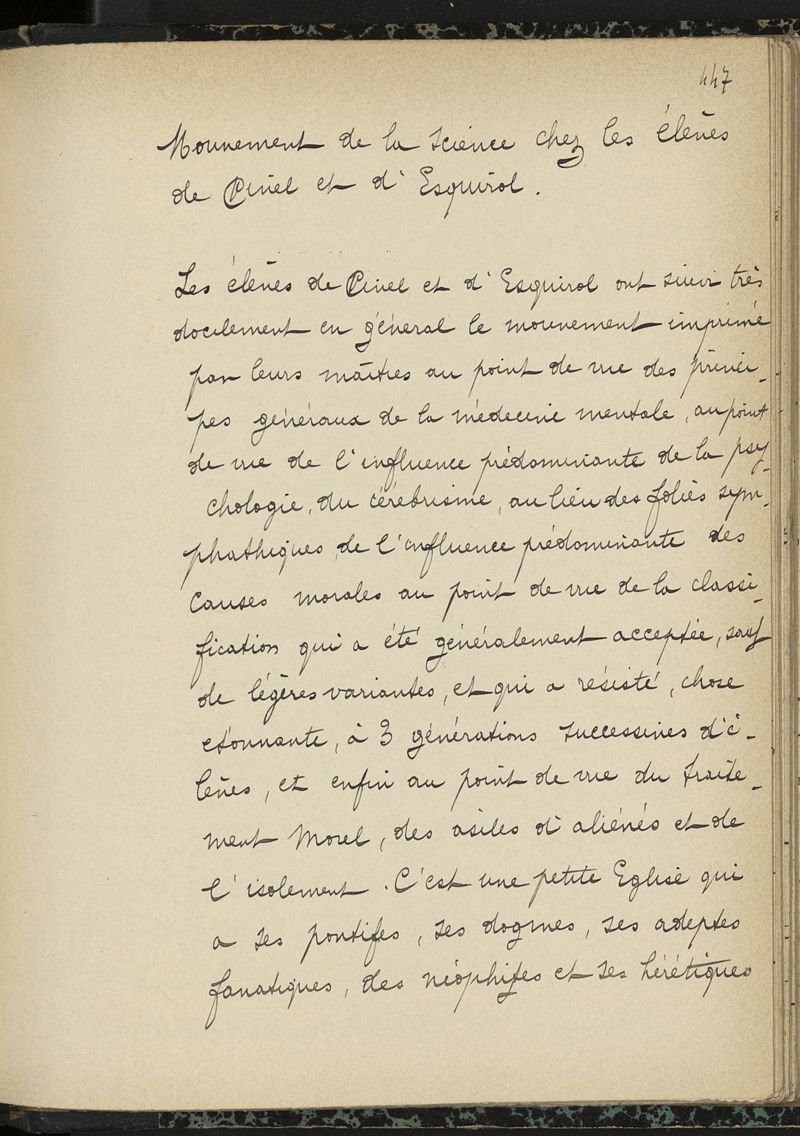 447
Mouvement de la science chez les élèves
de Pinel et d'Esquirol.
Les élèves de Pinel et d'Esquirol ont suivi très
docilement en général le mouvement imprimé
par leurs maîtres au point de vue des princi-
pes généraux de la médecine mentale, au point
de vue de l'influence prédominante de la psy-
chologie, du cérébrisme, au lieu des folies sym-
phathiques, de l'influence prédominante des
causes morales au point de vue de la classi-
fication qui a été généralement acceptée, sauf
de légères variantes, et qui a résisté, chose
étonnante, à 3 générations successives d'é-
lèves, et enfin au point de vue du traite-
ment Morel, des asiles d'aliénés et de
l'isolement. C'est une petite Eglise qui
a ses pontifes, ses dogmes, ses adeptes
fanatiques, des néophites et ses hérétiques